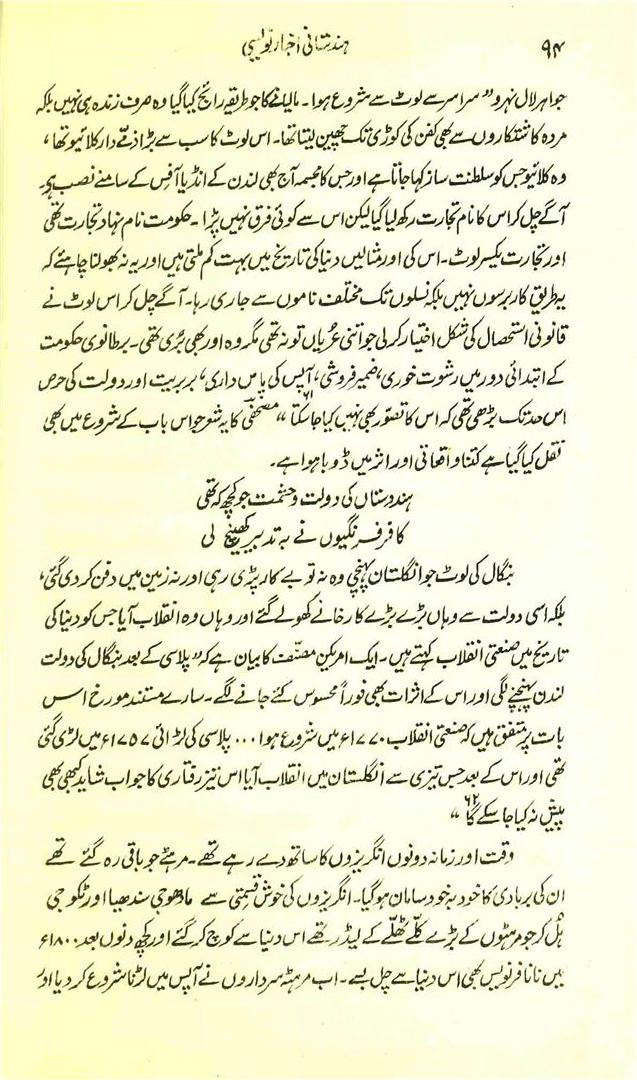 ۹۴ ہندستانی اخبار نویسی
جواہر لال نہرو ”سراسر لوٹ سے شروع ہوا۔ مالیانے کا جو طریقہ رائج کیا گیا وہ صرف زندہ ہی نہیں بلکہ
مردہ کاشتکاروں سے بھی کفن کی کوڑی تک چھین لیتا تھا۔ اس لوٹ کا سب سے بڑا ذمّے دار کلائیو تھا،
وہ کلائیو جس کو سلطنت ساز کہا جاتا ہے اور جس کا مجسمہ آج بھی لندن کے انڈیا آفس کے سامنے نصب ہے۔
آگے چل کر اس کا نام تجارت رکھ لیا گیا لیکن اس سے کوئی فرق نہیں پڑا۔ حکومت نام نہاد تجارت تھی
اور تجارت یکسر لوٹ۔ اس کی اور مثالیں دنیا کی تاریخ میں بہت کم ملتی ہیں اور یہ نہ بھولنا چاہئے کہ
یہ طریق کار برسوں نہیں بلکہ نسلوں تک مختلف ناموں سے جاری رہا۔ آگے چل کر اس لوٹ نے
قانونی استحصال کی شکل اختیار کر لی جو اتنی عُریاں تو نہ تھی مگر وہ اور بھی بُری تھی۔ برطانوی حکومت
کے ابتدائی دور میں رشوت خوری، ضمیر فروشی، آپس کی پاس داری، بربریت اور دولت کی حرص
اس حد تک بڑھی تھی کہ اس کا تصوّر بھی نہیں کیا جا سکتا“۶۱ مصحفی کا یہ شعر جو اس باب کے شروع میں بھی
نقل کیا گیا ہے کتنا واقعاتی اور اثر میں ڈوبا ہوا ہے۔
ہندوستاں کی دولت و حشمت جو کچھ کہ تھی
کافر فرنگیوں نے بہ تدبیر کھینچ لی
بنگال کی لوٹ جو انگلستان پہنچی وہ نہ تو بے کار پڑی رہی اور نہ زمین میں دفن کر دی گئی،
بلکہ اسی دولت سے وہاں بڑے بڑے کارخانے کھولے گئے اور وہاں وہ انقلاب آیا جس کو دنیا کی
تاریخ میں صنعتی انقلاب کہتے ہیں۔ ایک امریکن مصنّف کا بیان ہے کہ ”پلاسی کے بعد بنگال کی دولت
لندن پہنچنے لگی اور اس کے اثرات بھی فوراً محسوس کئے جانے لگے۔ سارے مستند مورخ اس
بات پر متفق ہیں کہ صنعتی انقلاب ۱۷۷۰ء میں شروع ہوا ... پلاسی کی لڑائی ۱۷۵۷ء میں لڑی گئی
تھی اور اس کے بعد جس تیزی سے انگلستان میں انقلاب آیا اس تیز رفتاری کا جواب شاید کبھی بھی
پیش نہ کیا جا سکے گا۶۲“
وقت اور زمانہ دونوں انگریزوں کا ساتھ دے رہے تھے۔ مرہٹے جو باقی رہ گئے تھے
ان کی بربادی کا خود بہ خود سامان ہو گیا۔ انگریزوں کی خوش قسمتی سے مادھوجی سندھیا اور ٹکوجی
ہلکر جو مرہٹوں کے بڑے کلّے ٹھلّے کے لیڈر تھے اس دنیا سے کوچ کر گئے اور کچھ دنوں بعد ۱۸۰۰ء
میں نانا فرنویس بھی اس دنیا سے چل بسے۔ اب مرہٹہ سرداروں نے آپس میں لڑنا شروع کر دیا اور